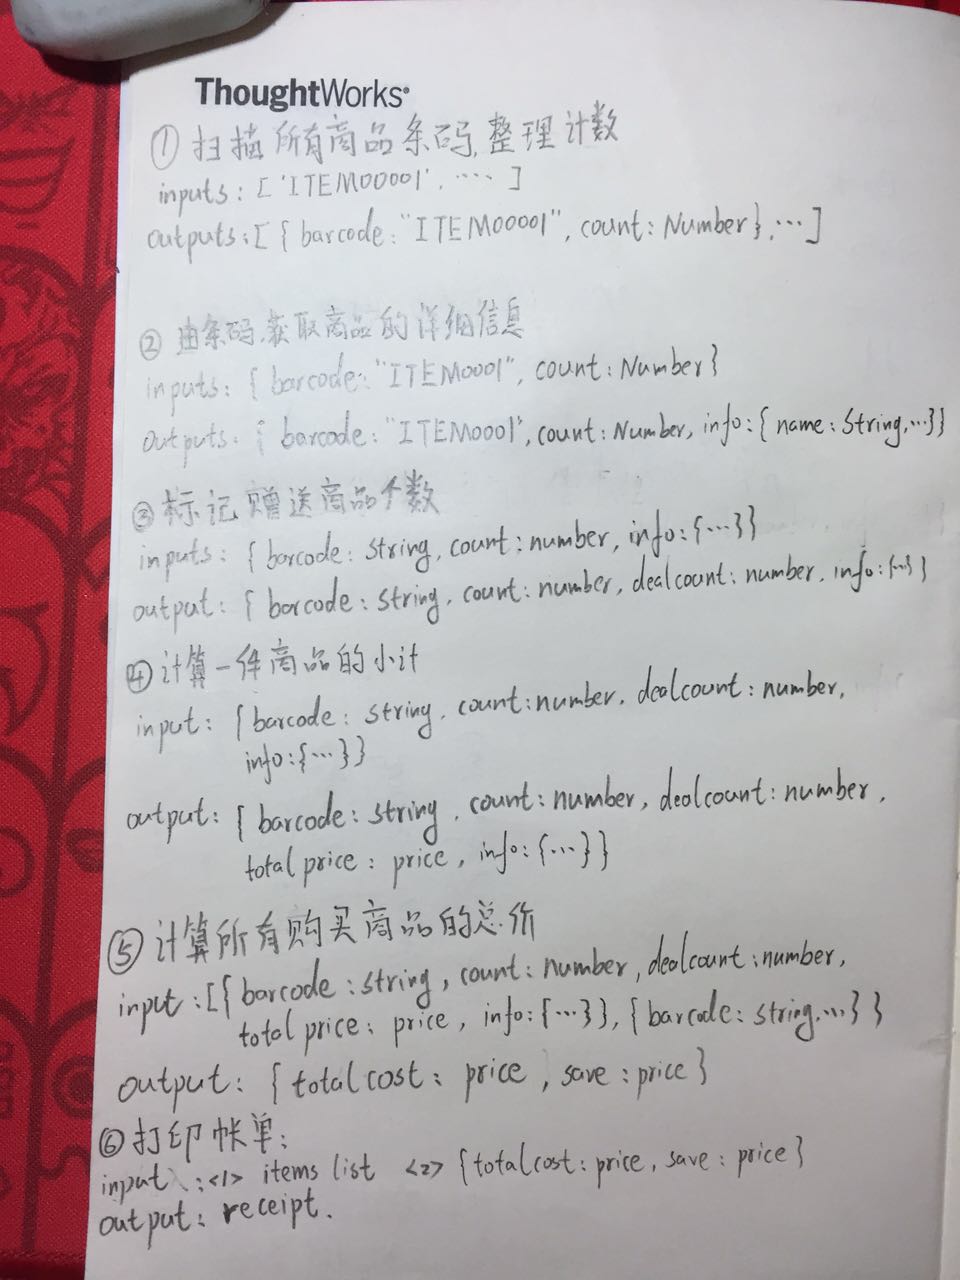 ThoughtWorks®
① 扫描所有商品条码,整理计数
inputs: ['ITEM00001', ····]
outputs: [{barcode: "ITEM00001", count: Number},···]
② 由条码,获取商品的详细信息
inputs: {barcode: "ITEM0001", count: Number}
outputs: {barcode: "ITEM0001", count: Number, info: {name: String,···}}
③ 标记赠送商品个数
inputs: {barcode: string, count: number, info: {···}}
output: {barcode: string, count: number, dealcount: number, info: {···}}
④ 计算一件商品的小计
input: {barcode: string, count: number, dealcount: number,
info: {···}}
output: {barcode: string, count: number, dealcount: number,
total price: price, info: {···}}
⑤ 计算所有购买商品的总价
input: [{barcode: string, count: number, dealcount: number,
total price: price, info: {···}}, {barcode: string,···}}
output: {total cost: price, save: price}
⑥ 打印帐单:
input: <1> items list <2> {total cost: price, save: price}
output: receipt.